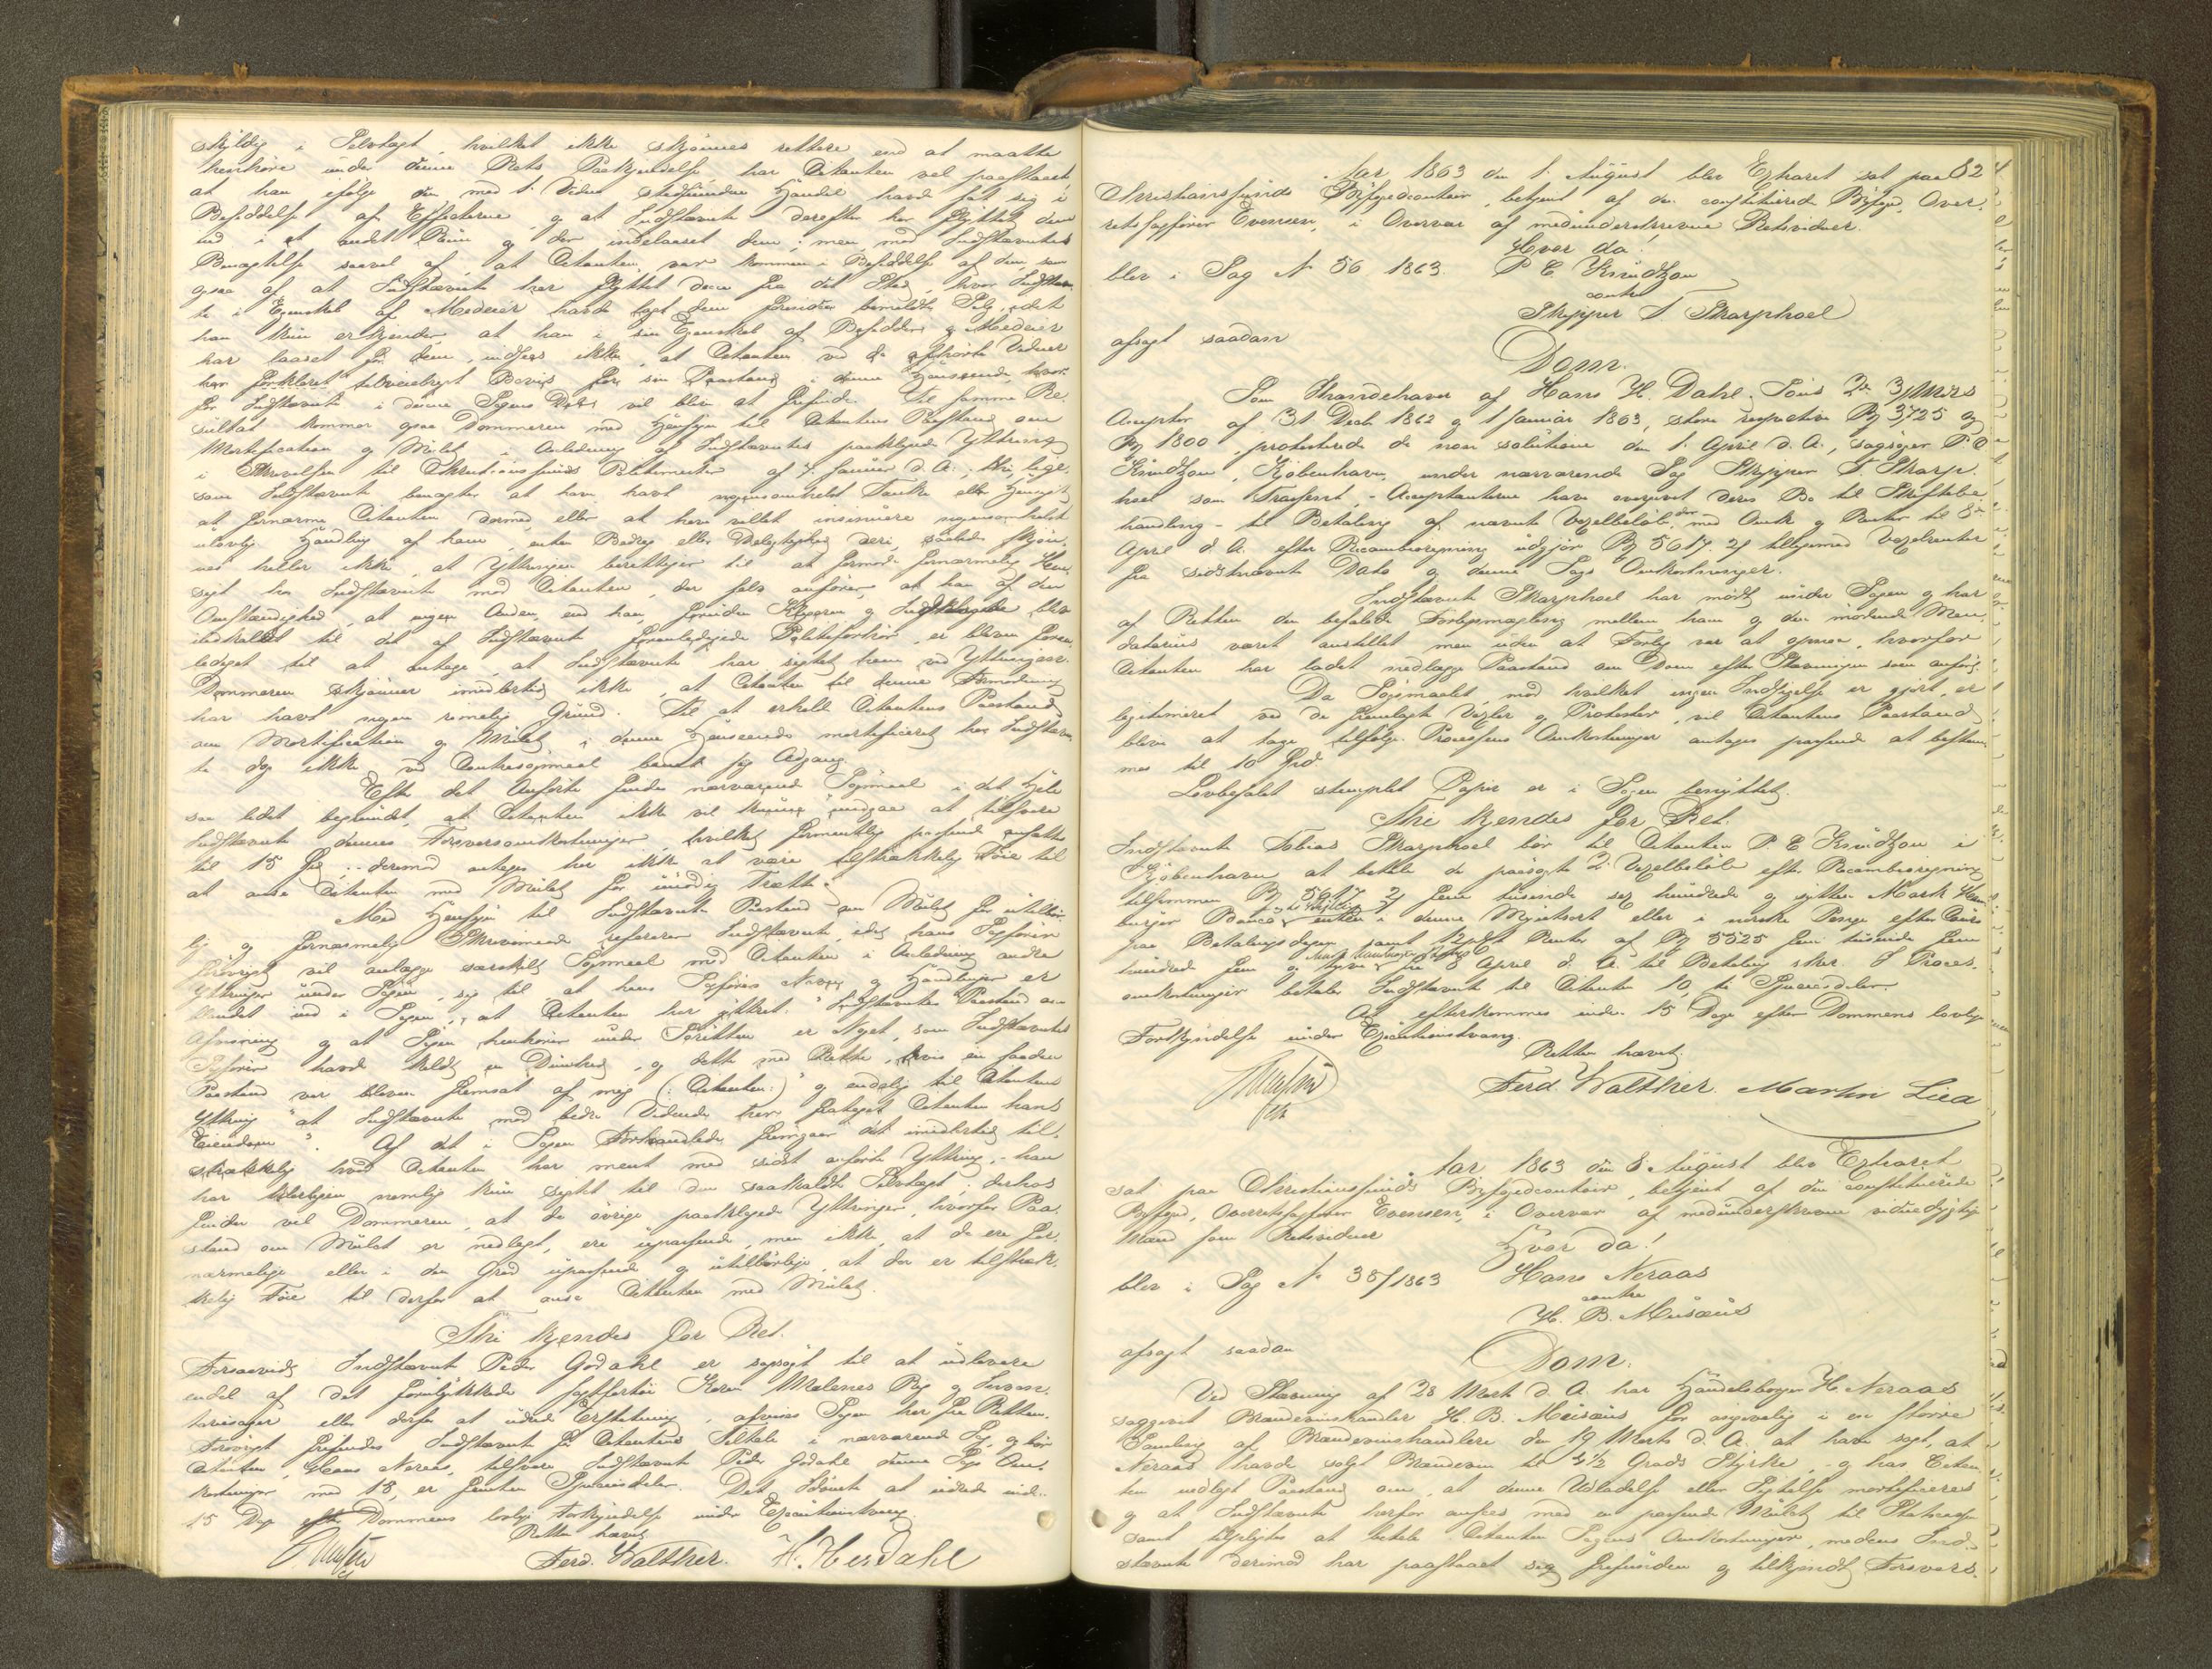 skyldig i Selvtægt, hvilket ikke skjønnes rettere end at maatte
henhøre under denne Rets Paakjendelse, har Citanten vel paastaaet,
at han ifølge den med 1. Viden stedfundne Handel havde sat sig i
Besiddelse af Effecterne, og at Indstævnte derefter har flyttet dem
ud i et andet Rum og der indelaaset dem; men mod Indstævntes
Benægtelse saavel af, at Citanten var kommen i Besiddelse af dem, som
ogsaa af at Indstævnte har flyttet dem fra det Sted, hvor Indstævn-
te i Egenskab af Medeier havde lagt dem forinden bemeldte Salg, idet
han kun erkjender, at han i sin Egenskab af Besidder og Medeier
har laaset for dem, indsees ikke, at Citanten ved de afhørte Vidner
har forklaret tilveiebragt Beviis for sin Paastand i denne Henseende, hvor-
for Indstævnte i denne Sagens Deel vil blive at frifinde. Til samme Re-
sultat kommer ogsaa Dommeren med Hensyn til Citantens Paastand om
Mortification og Mulct i Anledning af Indstævntes paaklagede Yttring
i Skrivelsen til Christiansunds Politimester af 7. Januar d. A.; thi lige-
som Indstævnte benægter at have havt nogensomhelst Tanke eller Hensigt
at fornærme Citanten dermed eller at have villet insinuere nogensomhelst
ulovlig Handling af ham, enten Bedrag eller Delagtighed deri, saaledes skjøn-
nes heller ikke, at Yttringen berettiger til at formode fornærmelig Hen-
sigt hos Indstævnte mod Citanten, der selv anfører, at han af den
Omstændighed, at ingen Anden end han, foruden Klageren og Indklagede blev
indkaldet til det af Indstævnte foranledigede Politiforhør, er bleven foran-
lediget til at antage, at Indstævnte har sigtet ham ved Yttringen.
Dommeren skjønner imidlertid ikke, at Citanten til denne Formodning
har havt nogen rimelig Grund. Til at erholde Citantens Paastand
om Mortification og Mulct i denne Henseende mortificeret har Indstævn-
te dog ikke ved Contrasøgsmaal banet sig Adgang.
Efter det Anførte findes nærværende Søgsmaal i det Hele
saa lidet begrundet, at Citanten ikke vil kunne undgaa at tilsvare
Indstævnte dennes Forsvarsomkostninger, hvilket formentlig passende ansættes
til 15 Spd; - dermod antages her ikke at være tilstrækkelig Føie til
at ansee Citanten med Mulct for unødig Trætte. -
Med Hensyn til Indstævntes Paastand om Mulct for utilbør-
lig og fornærmelig Skrivemaade refererer Indstævnte, idet hans Sagfører
forøvrigt vil anlægge særskilt Søgsmaal mod Citanten i Anledning andre
Yttringer under Sagen, sig til at hans Sagførers Navn og Handlinger er
blandet ind i Sagen, "at Citanten har yttret: "Indstævntes Paastand om
Afvisning og at Sagen henhører under Søretten er Noget, som Indstævntes
Sagfører havde kaldt en Dumhed, og dette med Rette, hvis en saadan
Paastand var bleven fremsat af mig (: Citanten:)" og endelig til Citantens
Yttring "at Indstævnte mod bedre Vidende har frataget Citanten hans
Eiendom". Af det i Sagen Forhandlede fremgaaer det imidlertid til-
strækkelig hvad Citanten har meent med sidst anførte Yttring, - han
har nemlig kun sigtet til den saakaldte Selvtægt; derhos
finder vel Dommeren, at de øvrige paaklagede Yttringer, hvorfor Paa-
stand om Mulct er nedlagt, ere upassende, men ikke, at de ere for-
nærmelige eller i den Grad upassende og utilbørlige, at der er tilstræk-
kelig Føie til derfor at ansee Citanten med Mulct.
Thi kjendes for Ret.
Forsaavidt Indstævnte Peder Godahl er sagsøgt til at udlevere
endel af det forulykkede Jagtfartøi Karen Malenes Rig og Inven-
tariesager eller derfor at udrede Erstatning, afvises Sagen her fra Retten.
Forøvrigt frifindes Indstævnte for Citantens Tiltale i nærværende Sag, og bør
Citanten, Hans Neraas, tilsvare Indstævnte Peder Godahl denne Sags Om-
kostninger med 15, er femten Speciedaler. Det Idømte at udrede inden
15 Dage efter Dommens lovlige Forkyndelse under Executionstvang.
Retten hævet.
Ferd. Walther. H. Hersdahl
82
Aar 1863 den 1. August blev Extraret sat paa
Christiansunds Byfogedcontoir, betjent af den constituerede Byfoged, Over-
retssagfører Evensen, i Overvær af medunderskrevne Retsvidner.
Hvor da!
blev i Sag No 56 1863. P C Knudtzon
contra
Skipper T. Skarphoel
afsagt saadan
Dom.
Som Ihændehaver af Hans H. Dahl & Søns 2de 3/Mdrs
Accepter af 31 Decbr 1862 og 1 Januar 1863, store respective B 3725 og
B 1800, protesterede de non solutione den 1. April d. A., sagsøger P. C
Knudtzon, Kjøbenhavn, under nærværende Sag Skipper T. Skarp-
hoel som Trassent, - Acceptanterne have overgivet deres Bo til Skiftebe-
handling - til Betaling af nævnte Vexelbeløbe, der med Omk. og Renter til 8de
April d. A. efter Recambioregning udgjør B 5617. 2 f tilligemed Vexelrenter
fra sidstnævnte Dato og denne Sags Omkostninger.
Indstævnte Skarphoel har mødt under Sagen og har
af Retten den befalede Forligsmægling mellem ham og den mødende Man-
datarius været anstillet men uden at Forlig var at opnaa, hvorfor
Citanten har ladet nedlægge Paastand om Dom efter Stævningen som anført.
Da Søgsmaalet, mod hvilket ingen Indsigelse er gjort, er
legitimeret ved de fremlagte Vexler og Protester, vil Citantens Paastand
blive at tage tilfølge. Processens Omkostninger antages passende at bestem-
mes til 10 Spd.
Lovbefalet stemplet Papir er i Sagen benyttet.
Thi kjendes for Ret.
Indstævnte Tobias Skarphoel bør til Citanten P. C Knudtzon i
Kjøbenhavn at betale de paasøgte 2de Vexelbeløbe efter Recambioregning
tilsammen B 5617 2 f fem tusinde sex hundrede og sytten Mark Ham-
burger Banco enten i denne Myntsort eller i norske Penge efter Cours
paa Betalingsdagen samt 12 pCt Renter af B 5525 fem tusinde fem
hundrede fem og tyve Mark Hamburger Banco fra 8 April d. A. til Betaling skeer. I Proces-
omkostninger betaler Indstævnte til Citanten 10, ti Speciedaler.
At efterkommes inden 15 Dage efter Dommens lovlige
Forkyndelse under Executionstvang.
Retten hævet.
Ferd. Walther. Martin Lien
Aar 1863 den 8. August blev Extraret
sat paa Christiansunds Byfogedcontoir, betjent af den constituerede
Byfoged, Overretssagfører Evensen, i Overvær af medunderskrevne vidnedygtige
Mænd som Retsvidner
Hvor da!
blev i Sag No 38/1863 Hans Neraas
contra
H. B. Musæus
afsagt saadan
Dom.
Ved Stævning af 28 Marts d. A. har Handelsborger H. Neraas
sagsøgt Brændevinshandler H. B. Musæus for angivelig i en større
Samling af Brændevinshandlere den 19 Marts d. A. at have sagt, at
Neraas havde solgt Brændevin til 4½ Grads Styrke, - og har Citan-
ten nedlagt Paastand om, at denne Udladelse eller Sigtelse mortificeres
og at Indstævnte herfor ansees med en passende Mulct til Statscassen
samt tilpligtes at betale Citanten Sagens Omkostninger, medens Ind-
stævnte derimod har paastaaet sig frifunden og tilkjendt Forsvars-